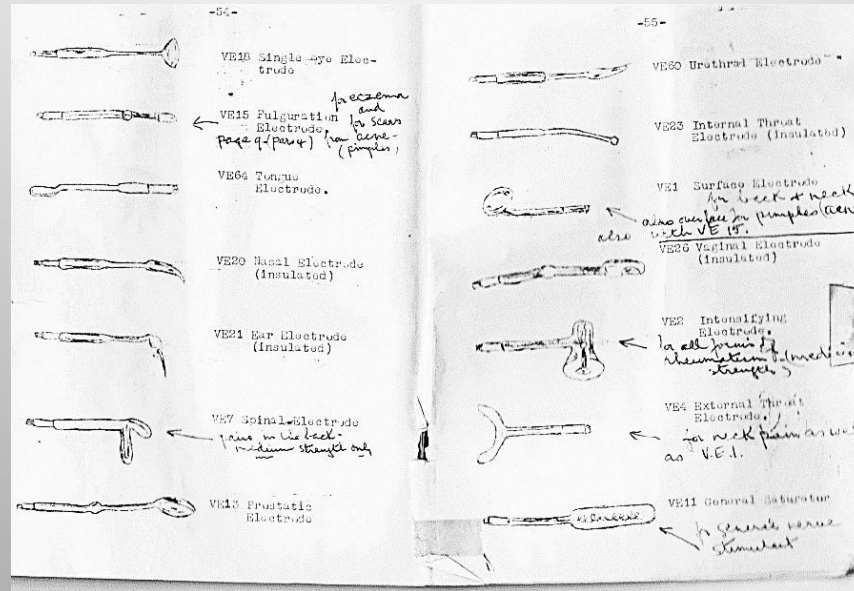 -54-
VE18 Single Eye Elec-
trode
VE15 Fulguration
Electrode.
for eczema
and
for scars
from acne-
(pimples)
page 9 (par 4)
VE64 Tongue
Electrode.
VE20 Nasal Electrode
(insulated)
VE21 Ear Electrode
(insulated)
VE7 Spinal Electrode
pains in the back-
medium strength only
VE13 Prostatic
Electrode
-55-
VE60 Urethral Electrode
VE23 Internal Throat
Electrode (insulated)
VE1 Surface Electrode
for back & neck
also surface for pimples
also with VE 15.
VE26 Vaginal Electrode
(insulated)
VE2 Intensifying
Electrode.
for all forms of
rheumatism
strength)
VE4 External Throat
Electrode.
for neck pain as
as V.E.1.
VE11 General Saturator
for general nerve
stimulant